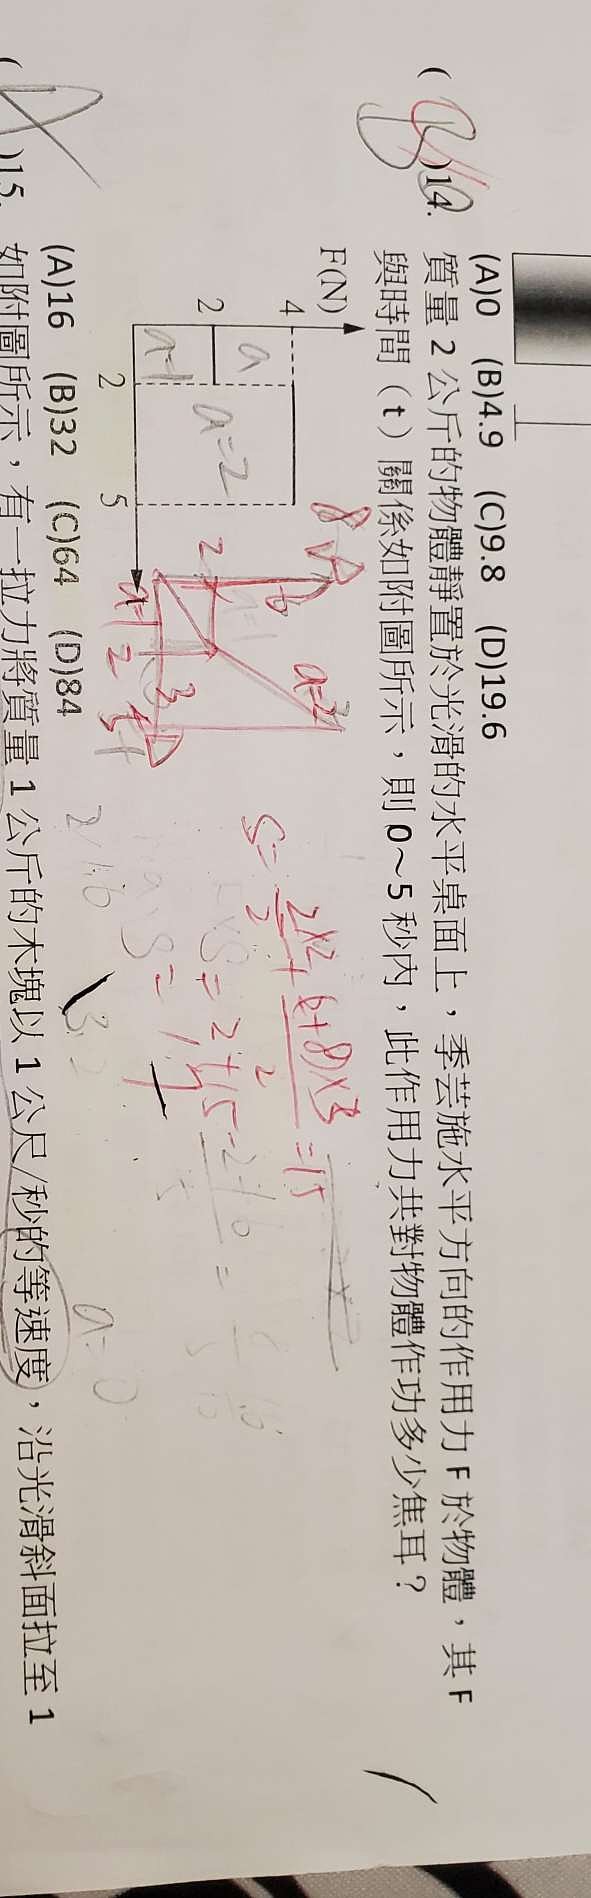 (A)0 (B)4.9 (C)9.8 (D)19.6
( )14. 質量 2 公斤的物體靜置於光滑的水平桌面上，季芸施水平方向的作用力 F 於物體，其 F
與時間（t）關係如附圖所示，則 0～5 秒內，此作用力共對物體作功多少焦耳？
F(N)
4
2
2 5
a
a=1
a=2
8
6
2
a=2
a=1
2 5
3
S= 2×2/2 + (2+8)×3/2 = 15
a=0
(A)16 (B)32 (C)64 (D)84
( )15. 如附圖所示，有一拉力將質量 1 公斤的木塊以 1 公尺/秒的等速度，沿光滑斜面拉至 1